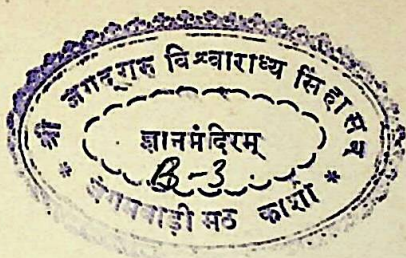 श्री जगद्गुरु विश्वाराध्य सिंहासन
ज्ञानमंदिरम्
B-3
* जंगमवाड़ी मठ काशी *